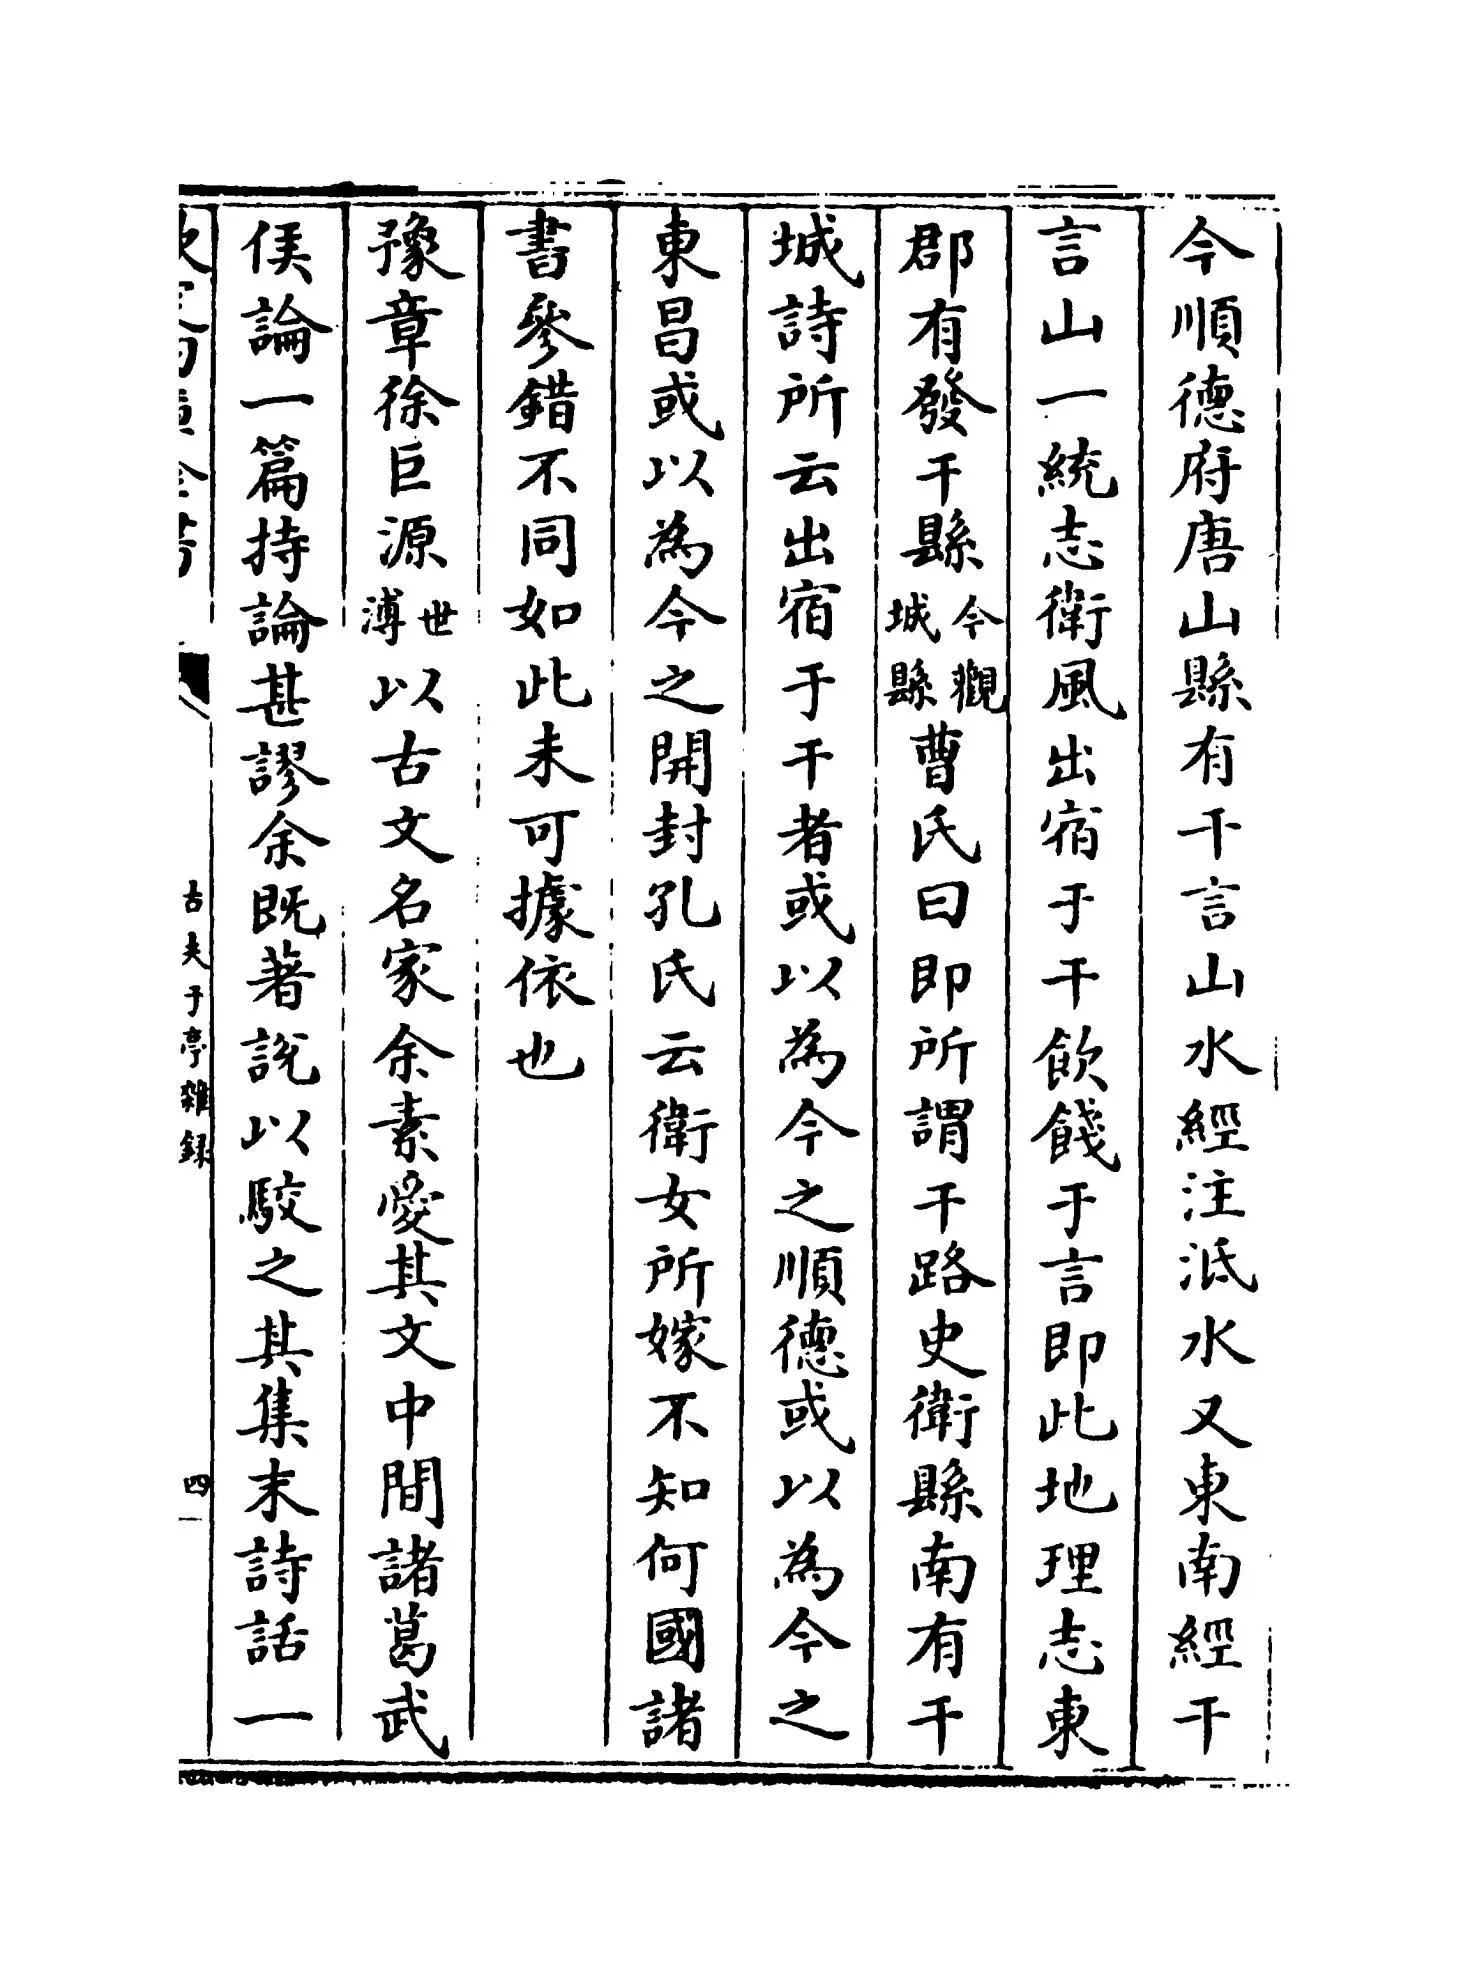 今順德府唐山縣有干言山水經注泜水又東南經干
言山一統志衛風出宿于干飲餞于言即此地理志東
郡有發干縣今觀城縣曹氏曰即所謂干路史衛縣南有干
城詩所云出宿于干者或以為今之順德或以為今之
東昌或以為今之開封孔氏云衛女所嫁不知何國諸
書參錯不同如此未可據依也
豫章徐巨源世溥以古文名家余素愛其文中間諸葛武
侯論一篇持論甚謬余既著說以駮之其集末詩話一
欽定四庫全書
古夫于亭雜錄
四